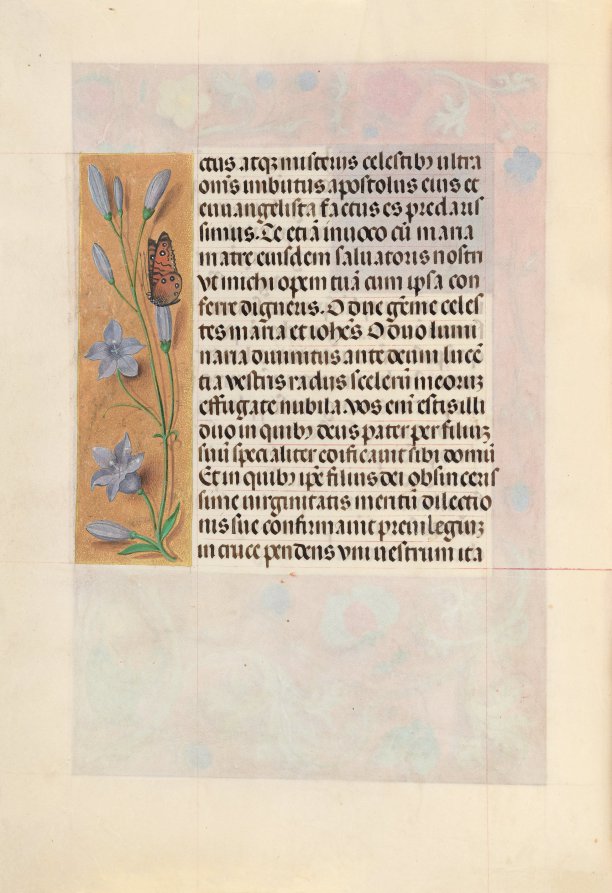 ctus atq; misteriis celestib9 ultra
om̄s imbutus apostolus eius et
euuangelista factus es preclaris
simus. Te etiā inuoco cū maria
matre eiusdem saluatoris nostri
vt michi opem tuā cum ipsa con
ferre digneris. O due gēme celes
tes maria et ioh̄es. O duo lumi
naria diuinitus ante deum lucē
tia vestris radiis scelerū meorum
effugate nubila. Vos em̄ estis illi
duo in quib9 deus pater per filium
suū specialiter edificauit sibi domū
Et in quib9 ip̄e filius dei ob sinceris
sime uirginitatis meritū dilectio
nis sue confirmauit preuilegium
in cruce pendens vni uestrum ita